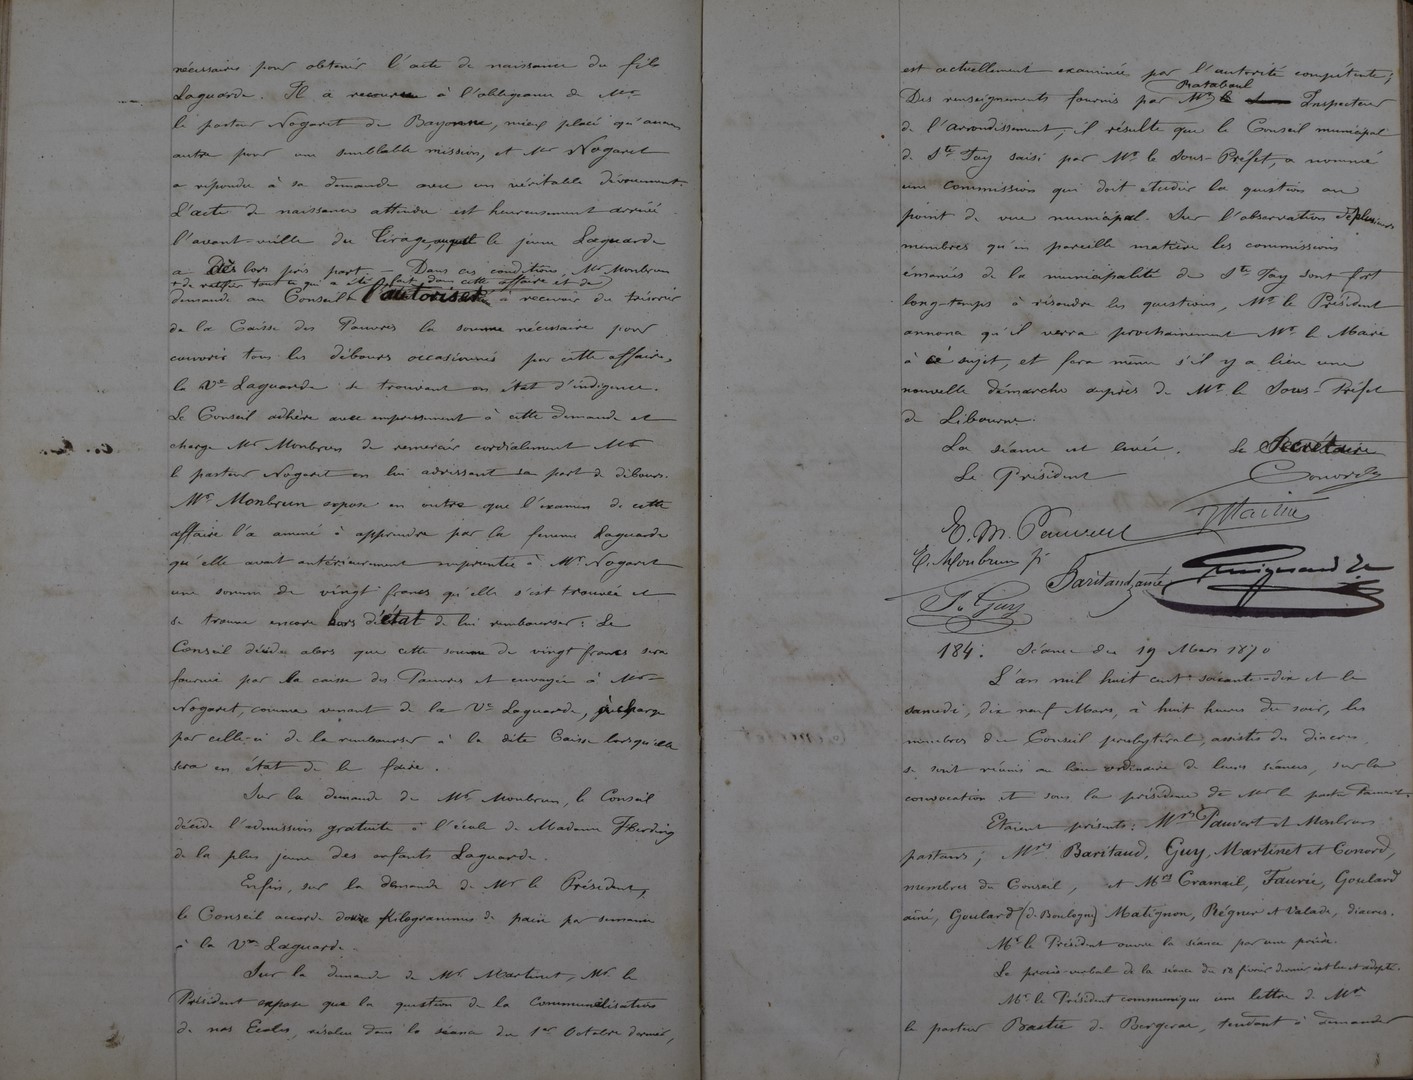 nécessaires pour obtenir l'acte de naissance du fils
Laguarde. Il a recouru à l'obligeance de Mr
le pasteur Nogaret de Bayonne, mieux placé qu'aucun
autre pour une semblable mission, et Mr Nogaret
a répondu à sa demande avec un véritable dévouement.
L'acte de naissance attendu est heureusement arrivé
l'avant-veille du tirage, auquel le jeune Laguarde
a dès lors pris part. — Dans ces conditions, Mr Monbrun
& de ratifier tout ce qu'il a été faire dans cette affaire et de
demande au Conseil l'autoriser à recevoir du trésorier
de la Caisse des Pauvres la somme nécessaire pour
couvrir tous les débours occasionnés par cette affaire,
la Ve Laguarde se trouvant en état d'indigence.
Le Conseil adhère avec empressement à cette demande et
charge Mr Monbrun de remercier cordialement Mr
le pasteur Nogaret en lui adressant sa part de débours.
Mr Monbrun expose en outre que l'examen de cette
affaire l'a amené à apprendre par la femme Laguarde
qu'elle avait antérieurement emprunté à Mr Nogaret
une somme de vingt francs qu'elle s'est trouvée et
se trouve encore hors d'état de lui rembourser: Le
Conseil décide alors que cette somme de vingt francs sera
fournie par la caisse des Pauvres et envoyée à Mr
Nogaret, comme venant de la Ve Laguarde, à charge
par celle-ci de la rembourser à la dite Caisse lorsqu'elle
sera en état de le faire.
Sur la demande de Mr Monbrun, le Conseil
décide l'admission gratuite à l'école de Madame Herding
de la plus jeune des enfants Laguarde.
Enfin, sur la demande de Mr le Président,
le Conseil accorde douze kilogrammes de pain par semaine
à la Ve Laguarde.
Sur la demande de Mr Martinet, Mr le
Président expose que la question de la communalisation
de nos Ecoles, résolue dans la séance du 1er Octobre dernier,
est actuellement examinée par l'autorité compétente;
Rataboul
Des renseignements fournis par Mr Inspecteur
de l'arrondissement, il résulte que le Conseil municipal
de Ste Foy saisi par Mr le Sous-Préfet, a nommé
une commission qui doit étudier la question au
point de vue municipal. Sur l'observation de plusieurs
membres qu'en pareille matière les commissions
émanées de la municipalité de Ste Foy sont fort
longtemps à résoudre les questions, Mr le Président
annonce qu'il verra prochainement Mr le Maire
à ce sujet, et fera même s'il y a lieu une
nouvelle démarche auprès de Mr le Sous-Préfet
de Libourne.
La séance est levée. Le Secrétaire
Le Président Conord
E. M. Pauvert
E. Monbrun Baritaud ainé
P. Guy
184. Séance du 19 Mars 1870
L'an mil huit cent soixante-dix et le
samedi, dix neuf Mars, à huit heures du soir, les
membres du Conseil presbytéral, assistés des diacres,
se sont réunis au lieu ordinaire de leurs séances, sur la
convocation et sous la présidence de Mr le pasteur Pauvert.
Etaient présents: Mrs Pauvert et Monbrun
pasteurs; Mrs Baritaud, Guy, Martinet et Conord,
membres du Conseil, et Mrs Cramail, Faurie, Goulard
ainé, Goulard (de Boulogne) Matignon, Régner et Valade, diacres.
Mr le Président ouvre la séance par une prière.
Le procès-verbal de la séance du 18 février dernier est lu et adopté.
Mr le Président communique une lettre de Mr
le pasteur Bastie de Bergerac, tendant à demander